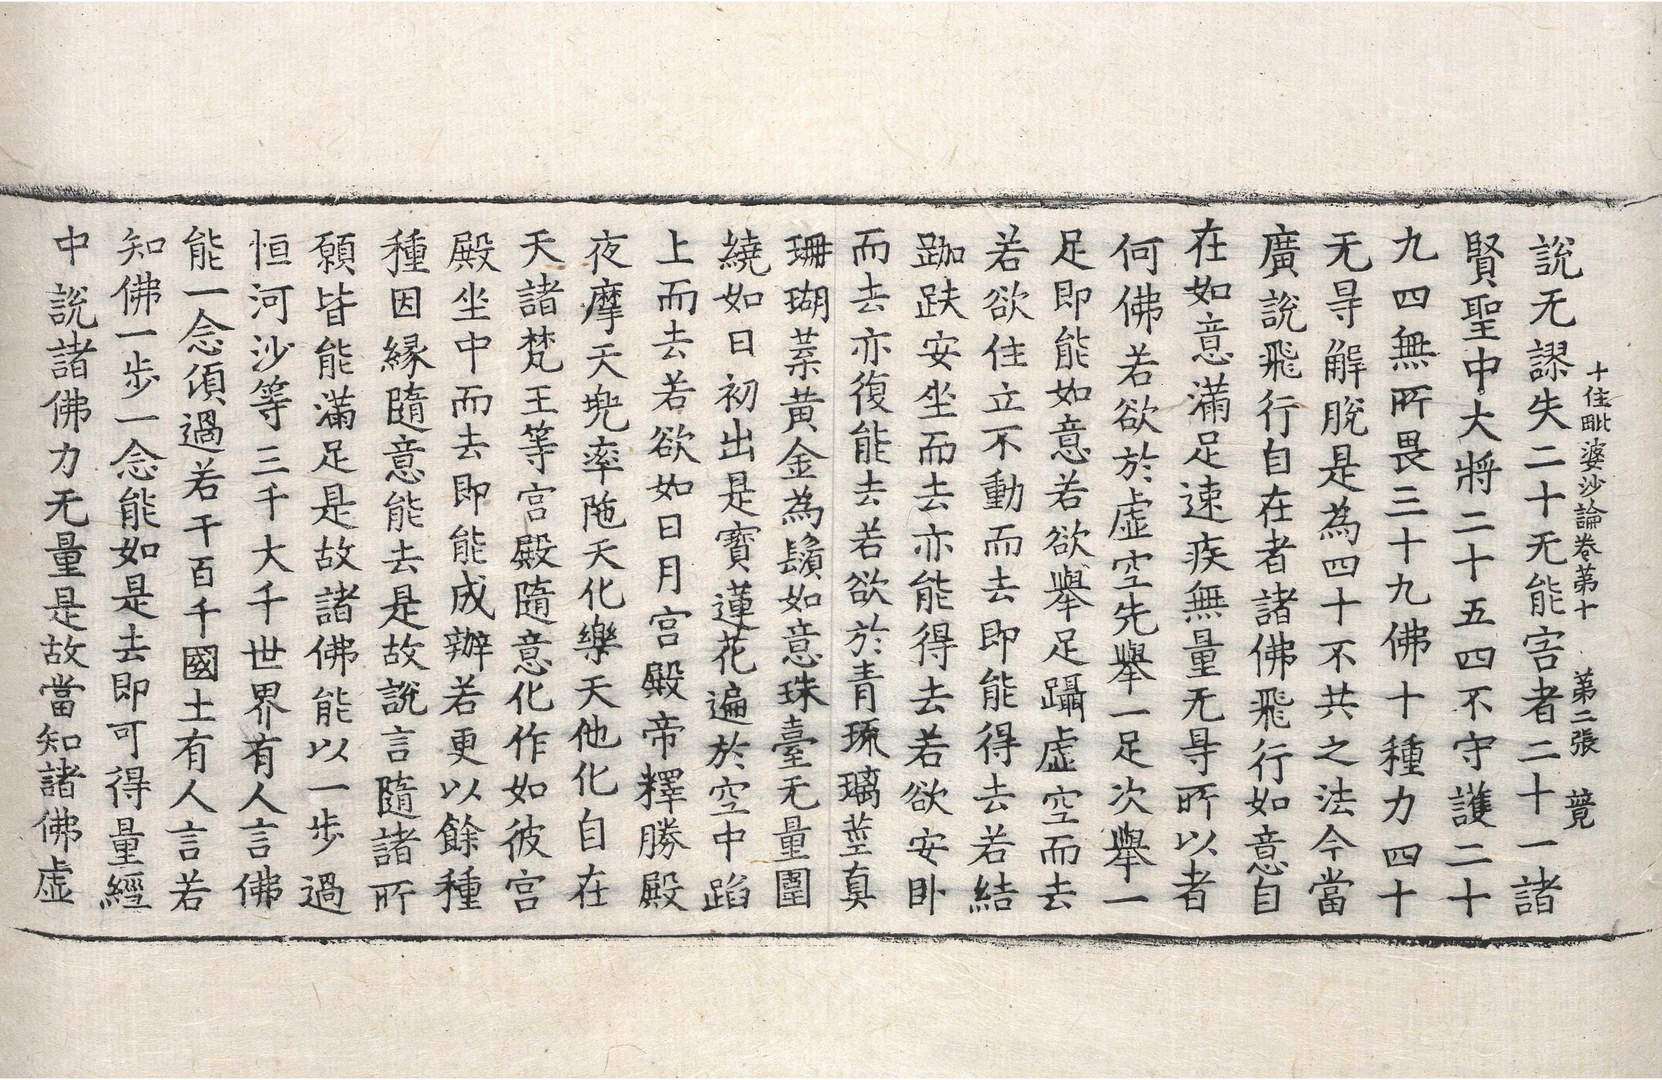 十住毗婆沙論卷苐十　苐二張　竟
說无謬失二十无能害者二十一諸
賢聖中大將二十五四不守護二十
九四無所畏三十九佛十種力四十
无㝵解脫是為四十不共之法今當
廣說飛行自在者諸佛飛行如意自
在如意滿足速疾無量无㝵所以者
何佛若欲於虛空先舉一足次舉一
足即能如意若欲舉足躡虛空而去
若欲住立不動而去即能得去若結
跏趺安坐而去亦能得去若欲安卧
而去亦復能去若欲於青琉璃莖真
珊瑚葉黃金為鬚如意珠臺无量圍
繞如日初出是寶蓮花遍於空中蹈
上而去若欲如日月宮殿帝釋勝殿
夜摩天兜率陁天化樂天他化自在
天諸梵王等宮殿隨意化作如彼宮
殿坐中而去即能成辦若更以餘種
種因緣隨意能去是故說言隨諸所
願皆能滿足是故諸佛能以一步過
恒河沙等三千大千世界有人言佛
能一念湏過若干百千國土有人言若
知佛一步一念能如是去即可得量經
中說諸佛力无量是故當知諸佛虛